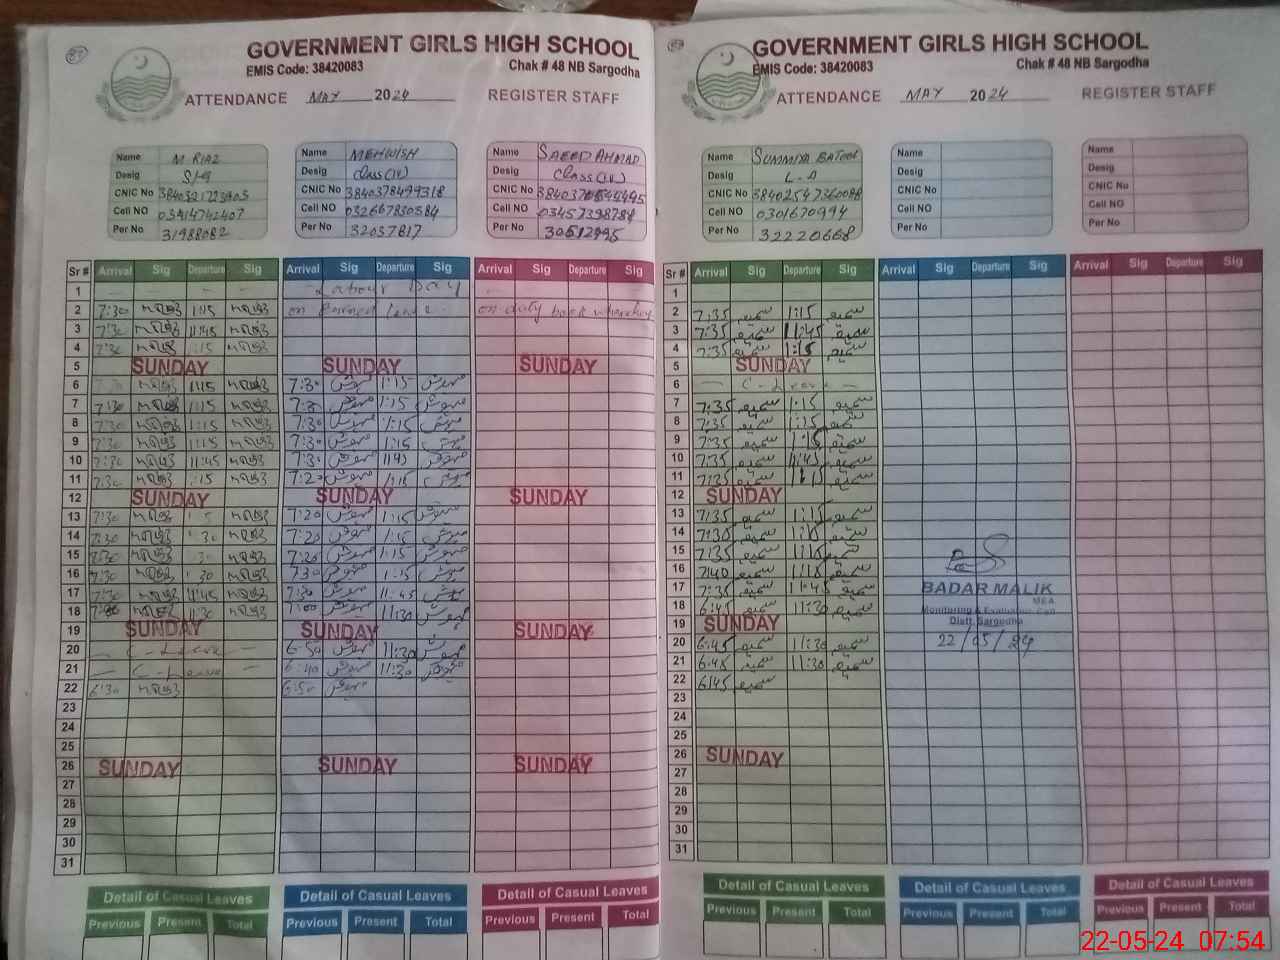 GOVERNMENT GIRLS HIGH SCHOOL
EMIS Code: 38420083 Chak # 48 NB Sargodha
ATTENDANCE MAY 2024 REGISTER STAFF
Name M RIAZ
Desig
CNIC No
Cell NO
Per No 31988082
Name MEHWISH
Desig Class (IV)
CNIC No 3840378499318
Cell NO 032667830584
Per No 32037817
Name SAEED AHMAD
Desig Class (IV)
CNIC No
Cell NO 03457398784
Per No 30512995
Sr # Arrival Sig Departure Sig Arrival Sig Departure Sig Arrival Sig Departure Sig
1 Labour Day
2 7:30 1:15 on Earned leave on duty
3 7:30 11:45
4 7:30 1:15
5 SUNDAY SUNDAY SUNDAY
6 1:15 7:30 مہوش 1:15 مہوش
7 7:30 1:15 مہوش 1:15 مہوش
8 7:30 1:15 7:30 مہوش 1:15 مہوش
9 7:30 1:15 7:30 مہوش 1:15 مہوش
10 7:30 11:45 7:30 مہوش 11:45 مہوش
11 7:30 1:15 7:20 مہوش 1:15 مہوش
12 SUNDAY SUNDAY SUNDAY
13 7:30 7:20 مہوش 1:15 مہوش
14 7:30 7:20 مہوش 1:15 مہوش
15 7:20 مہوش 1:15 مہوش
16 7:30 7:30 مہوش 1:15 مہوش
17 7:30 11:45 7:30 مہوش 11:45 مہوش
18 11:30 مہوش 11:30 مہوش
19 SUNDAY SUNDAY SUNDAY
20 — C-Leave — 6:50 مہوش 11:30 مہوش
21 — C-Leave — 6:40 مہوش 11:30 مہوش
22 6:30 6:50 مہوش
23
24
25
26 SUNDAY SUNDAY SUNDAY
27
28
29
30
31
Detail of Casual Leaves Detail of Casual Leaves Detail of Casual Leaves
Previous Present Total Previous Present Total Previous Present Total
GOVERNMENT GIRLS HIGH SCHOOL
EMIS Code: 38420083 Chak # 48 NB Sargodha
ATTENDANCE MAY 2024 REGISTER STAFF
Name SUMMIYA BATOOL
Desig L-A
CNIC No 38402547360088
Cell NO 0301670994
Per No 32220668
Name
Desig
CNIC No
Cell NO
Per No
Name
Desig
CNIC No
Cell NO
Per No
Sr # Arrival Sig Departure Sig Arrival Sig Departure Sig Arrival Sig Departure Sig
1
2 7:35 سمیہ 1:15 سمیہ
3 7:35 سمیہ 11:45 سمیہ
4 7:35 سمیہ 1:15 سمیہ
5 SUNDAY
6 — C-Leave —
7 7:35 سمیہ 1:15 سمیہ
8 7:35 سمیہ 1:15 سمیہ
9 7:35 سمیہ 1:15 سمیہ
10 7:35 سمیہ 11:45 سمیہ
11 7:35 سمیہ 1:15 سمیہ
12 SUNDAY
13 7:35 سمیہ 1:15 سمیہ
14 7:30 سمیہ 1:15 سمیہ
15 7:35 سمیہ 1:15 سمیہ
16 7:40 سمیہ 1:15 سمیہ
17 7:35 سمیہ 11:45 سمیہ
18 6:45 سمیہ 11:30 سمیہ
19 SUNDAY
20 6:45 سمیہ 11:30 سمیہ
21 6:45 سمیہ 11:30 سمیہ
22 6:45 سمیہ
23
24
25
26 SUNDAY
27
28
29
30
31
BADAR MALIK
MEA
Monitoring & Evaluation Cell
Distt. Sargodha
22/05/24
Detail of Casual Leaves Detail of Casual Leaves Detail of Casual Leaves
Previous Present Total Previous Present Total Previous Present Total
22-05-24 07:54